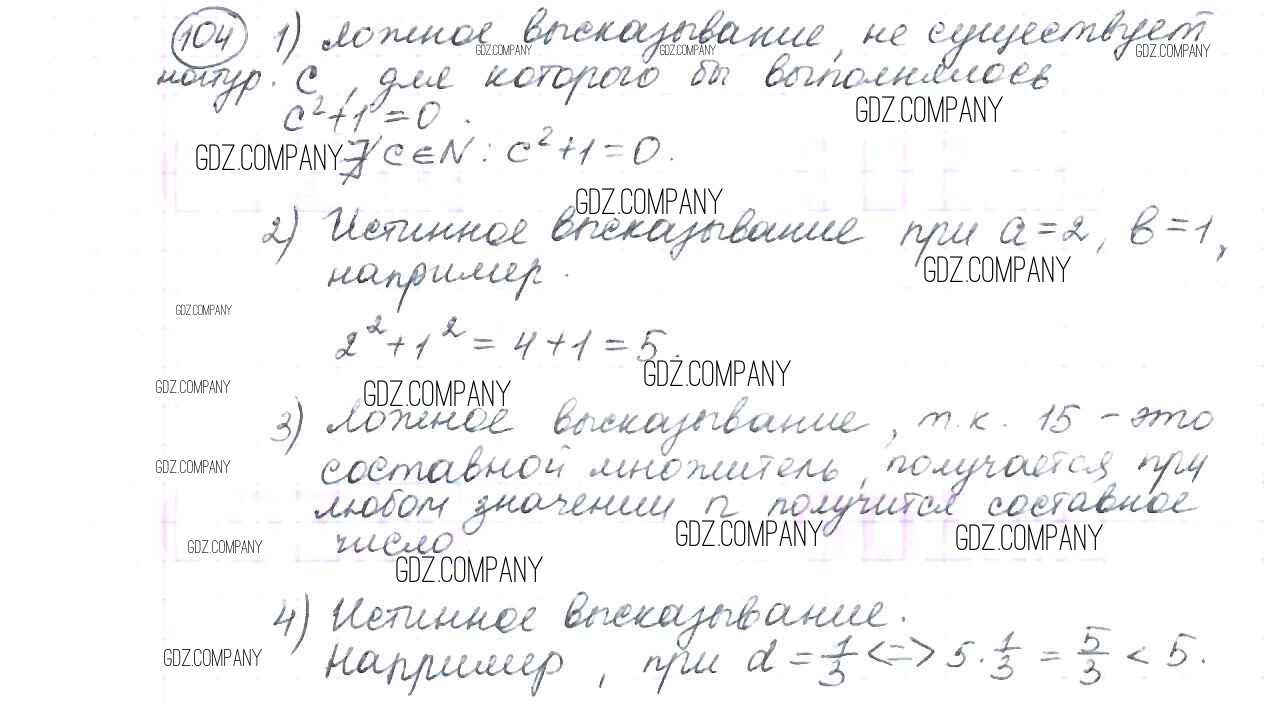 104 1) Ложное высказывание, не существует
GDZ.COMPANY GDZ.COMPANY GDZ.COMPANY
натур. c, для которого бы выполнялось
GDZ.COMPANY
c²+1=0.
GDZ.COMPANY ∄ c∈N: c²+1=0.
GDZ.COMPANY
2) Истинное высказывание при a=2, b=1,
GDZ.COMPANY
например.
GDZ.COMPANY
2²+1²=4+1=5.
GDZ.COMPANY
GDZ.COMPANY GDZ.COMPANY
3) Ложное высказывание, т.к. 15 – это
GDZ.COMPANY
составной множитель, получается, при
любом значении n получится составное
GDZ.COMPANY GDZ.COMPANY
GDZ.COMPANY число
GDZ.COMPANY
4) Истинное высказывание.
GDZ.COMPANY
Например, при d = 1/3 <=> 5·1/3 = 5/3 < 5.